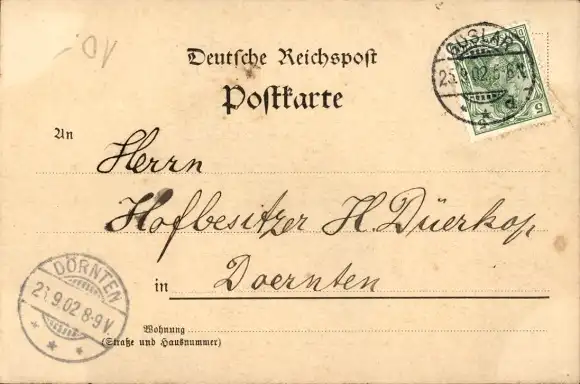 Deutsche Reichspost
Postkarte
GOSLAR
25.9.02.6-8V.
5
An
Herrn
Hofbesitzer H. Düerkop
in Doernten
DÖRNTEN
25.9.02 8-9V.
Wohnung
(Straße und Hausnummer)